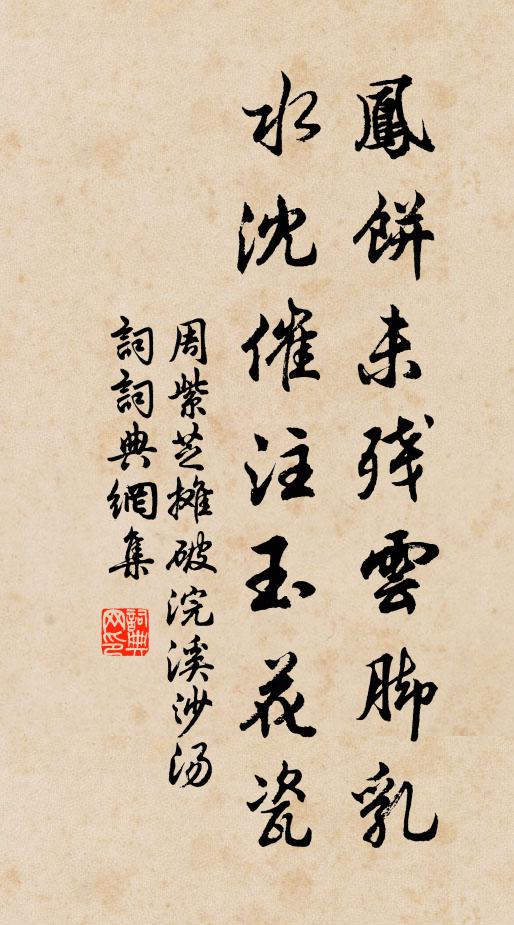 鳳餅未殘雲脚乳
水沈催注玉花瓷
周紫芝攤破浣溪沙湯
詞詞典網集
詞典网印